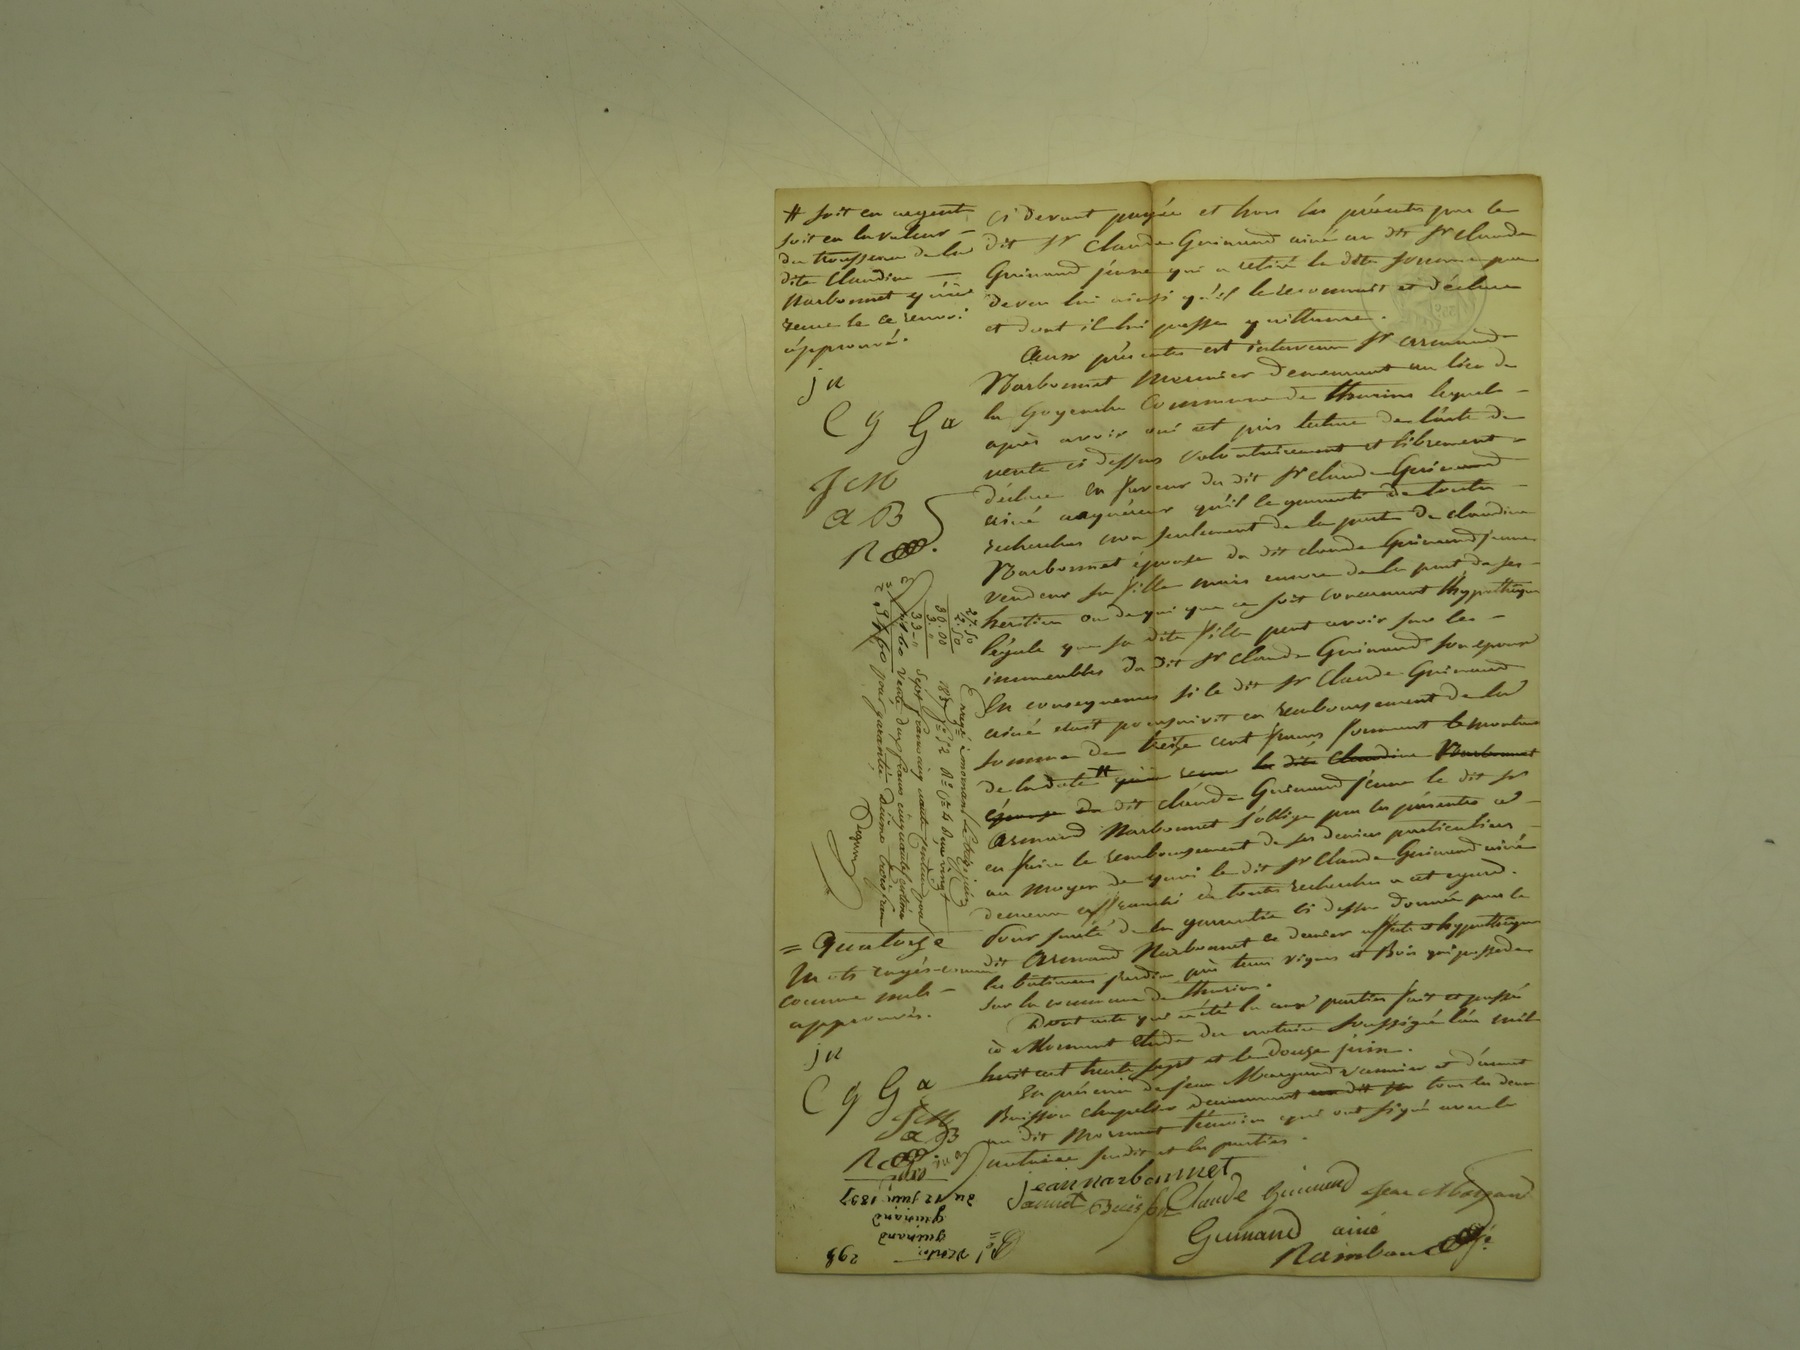 # soit en argent
soit en la valeur –
du trousseau de la
dite Claudine –
Narbonnet
ce renvoi
approuvé.
jn
C g G a
J M
a B
R
ci devant payée et hors les présentes par le
dit Sr Claude Guinand ainé au dit Sr Claude
Guinand jeune qui a retiré la dite somme par
devers lui ainsi qu'il le reconnait et déclare
et dont il lui passe quittance.
Aux présentes est intervenu Sr armand
Narbonnet meunier demeurant au lieu de
la commune de thurins lequel –
après avoir ouï et pris lecture de l'acte de
vente ci dessus volontairement et librement
déclare en faveur du dit Sr Claude Guinand
ainé acquéreur qu'il le garantit de toutes –
recherches non seulement de la part de claudine
Narbonnet épouse du dit claude Guinand jeune
vendeur sa fille mais encore de la part de ses –
héritiers ou de qui que ce soit concernant l'hypothèque
légale que sa dite fille peut avoir sur les –
immeubles du dit Sr Claude Guinand son époux
En conséquence si le dit Sr Claude Guinand
ainé etait poursuivit en remboursement de la
somme de treize cent francs formant le montant
de la dote # la dite Claudine Narbonnet
épouse du dit claude Guinand jeune le dit Sr
Armand Narbonnet s'oblige par les présentes à –
en faire le remboursement de ses deniers particuliers –
au moyen de quoi le dit Sr Claude Guinand ainé
demeure affranchi de toutes recherches a cet egard.
Pour sureté de la garantie ci dessus donnée par le
dit Armand Narbonnet ce dernier affecte et hypothèque
les batimens jardin prés terres vignes et Bois qu'il possede
sur la commune de thurins.
Dont acte qui a été lu aux parties fait et passé
à Mornant etude du notaire soussigné l'an mil
huit cent trente sept et le douze juin.
En présence de jean Margand et
Buisson chapelier demeurant tous les deux
au dit Mornant témoins qui ont signé avec le
notaire susdit et les parties.
Enregé à mornant le juin
1837 fo 52
sept francs cinq
vente deux francs cinquante centimes
pour garantie décime trois francs
27.50
2.50
30.00
3."
33–"
= Quatorze
Mots rayés
comme nuls –
approuvés.
jn
C g G a
J M
a B
R
jean narbonnet
Claude Guinand jean Margand
Guinand ainé
Raimbaud
du 12 juin 1837
Vente
guinand
guinand
293